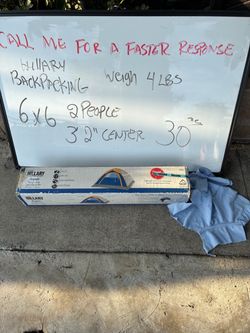 CALL ME FOR A FASTER RESPONSE
HILLARY
BACKPACKING Weigh 4 LBS
6x6 2 PEOPLE
3' 2" CENTER 30
HILLARY
HILLARY